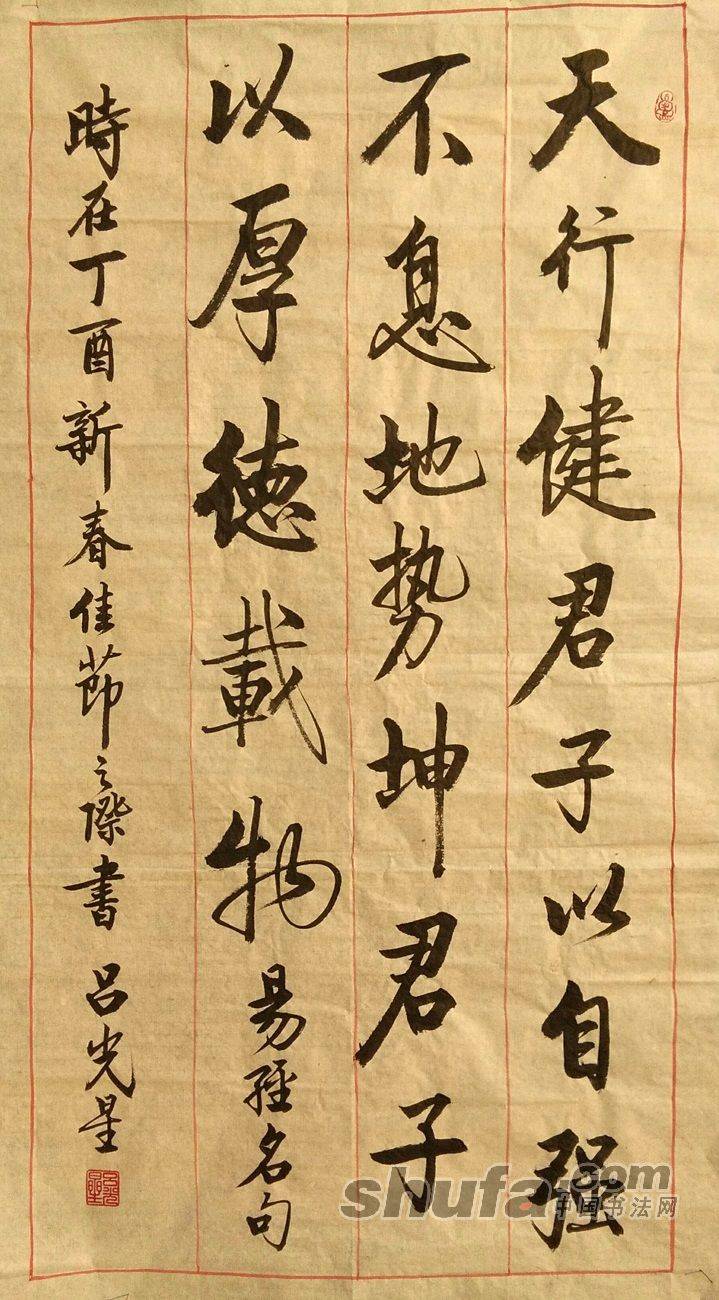 天行健君子以自强
不息地势坤君子
以厚德載物易經名句
時在丁酉新春佳節之際書 吕光星
shufa.com
中国书法网